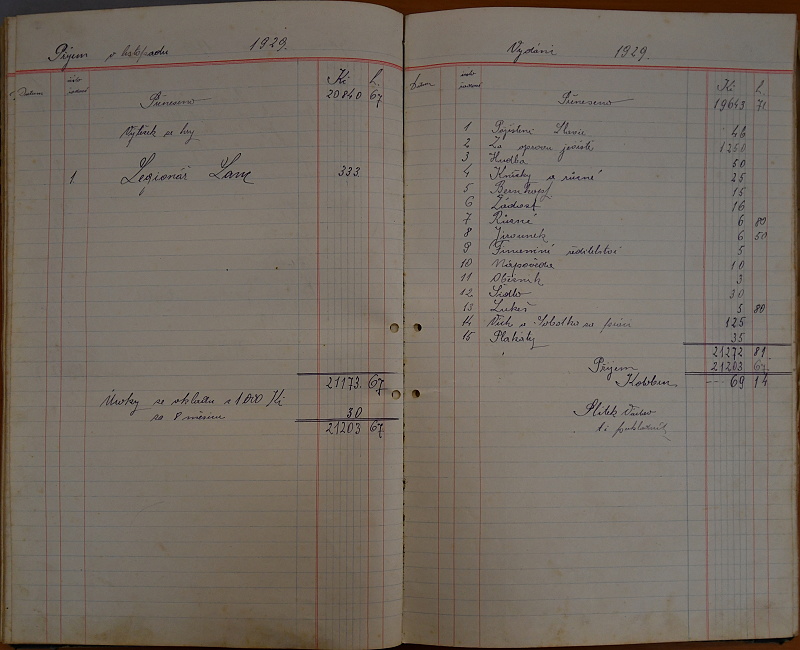 Příjem v listopadu 1929.
Datum číslo Kč h.
Přineseno 20840 67
Výtěžek ze hry
1 Legionář 333.
21173. 67
Úroky ze vkladu 1000 Kč
za 8 měsíců 30
21203 67
Vydání 1929.
Datum číslo Kč h.
Přineseno 19643 71
1 Pojištění 46
2 Za opravu jeviště 1250
3 Hudba 50
4 Knížky a různé 25
5 15
6 Žádost 16
7 Různé 6 80
8 6 50
9 ředitelství 5
10 Nápověda 10
11 Občerstv 3
12 Šidlo 30
13 Lukeš 5 80
14 a 125
15 Plakáty 35
21272 81
Příjem 21203 67
69 14
Plítek Václav
t. č. pokladník